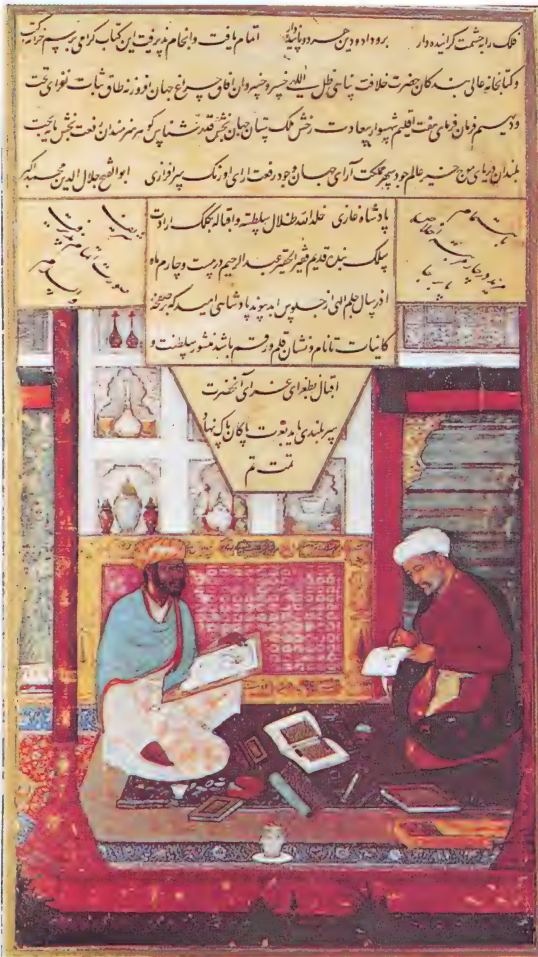 فلک را چشمت گرانیده دار برو داد و دین هر دو پاینده دار اتمام یافت و انجام پذیرفت این کتاب گرامی برسم خزانه
و کتابخانه عالی بندکان حضرت خلافت پناهی ظل اللهی خسرو خسروان آفاق چراغ جهان افروز نه طاق ثبات تقوای تخت
و دیهیم فرمان فرمای هفت اقلیم شهسوار سعادت رخش ملک ستان جهان بخش قدر شناس گوهر هنرمندان رفعت بخش پایه تخت
بلندان دریای موج خیز عالم جود سپهر مملکت آرای جهان وجود رفعت آرای اورنک سرفرازی ابوالفتح جلال الدین محمد اکبر
پادشاه غازی خلد الله ظلال سلطنته و اقباله بکلک ارادت
بنده قدیم فقیر الحقیر عبد الرحیم در بیست و چارم ماه
آذر سال چلم الهی از جلوس ابد پیوند پادشاهی امید که بر صفحه
کائنات تا نام و نشان قلم و رقم باشد منشور سلطنت و
اقبال بطغرای غرای آنحضرت
سربلندی یابد بعزت پاکان پاک نهاد
تمت تم
صورت اتمام پذیرفت